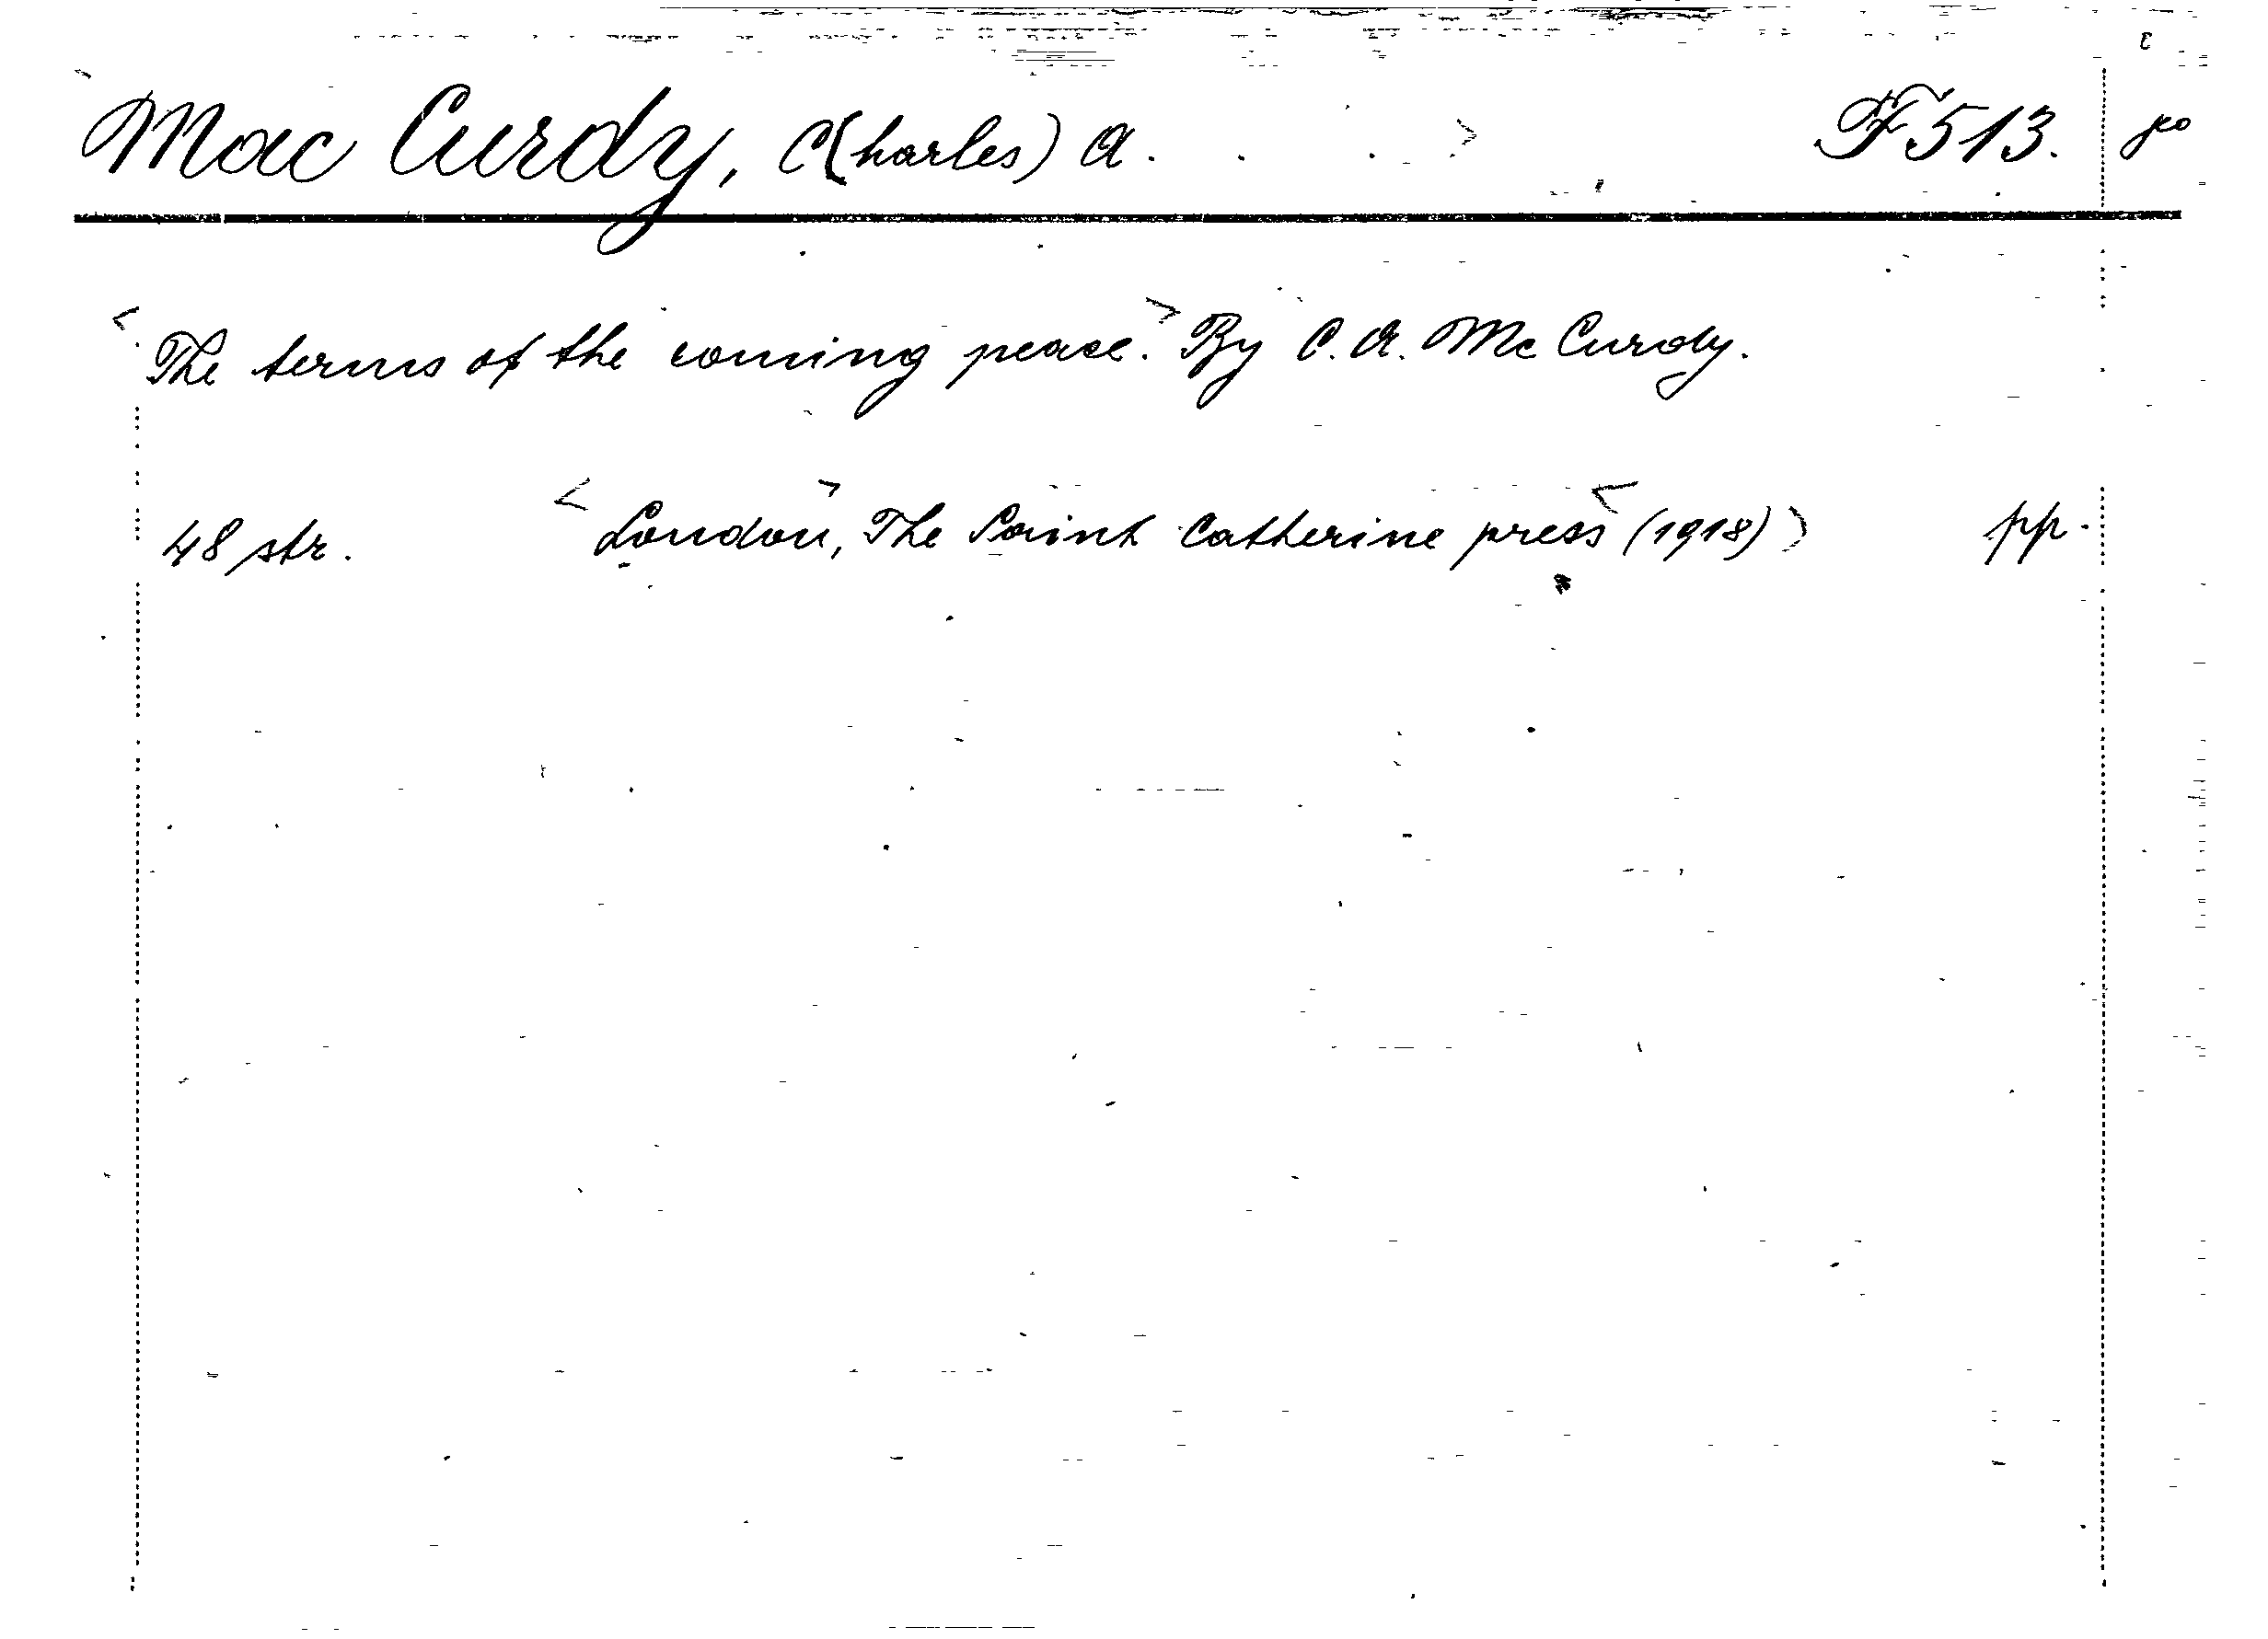 Mac Curdy, C(harles) A. F 513.
The terms of the coming peace. By C. A. Mc Curdy.
48 str. London, The Saint Catherine press (1918) pp.